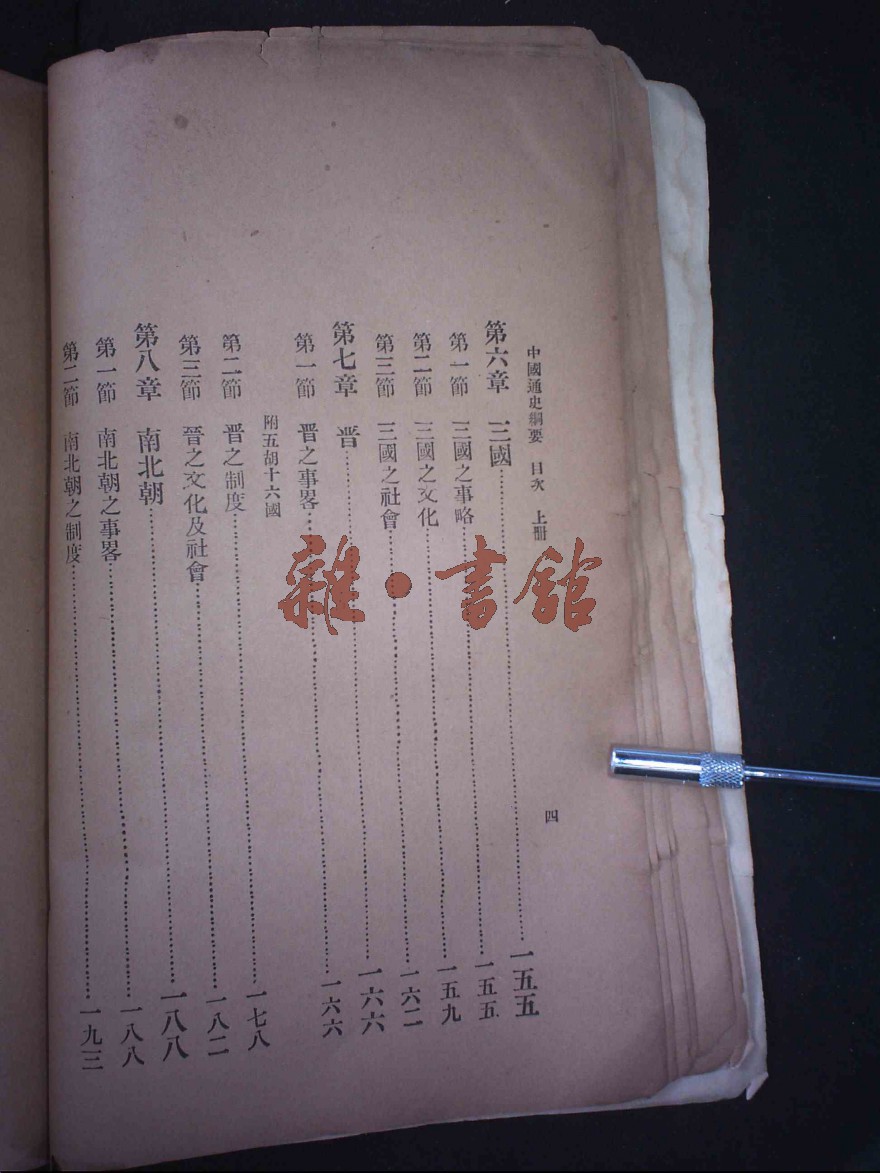 中國通史綱要 目次 上冊 四
第六章 三國……一五五
第一節 三國之事略……一五五
第二節 三國之文化……一五九
第三節 三國之社會……一六二
第七章 晋……一六六
第一節 晋之事畧……一六六
附五胡十六國
第二節 晋之制度……一七八
第三節 晉之文化及社會……一八二
第八章 南北朝……一八八
第一節 南北朝之事畧……一八八
第二節 南北朝之制度……一九三
雜・書館